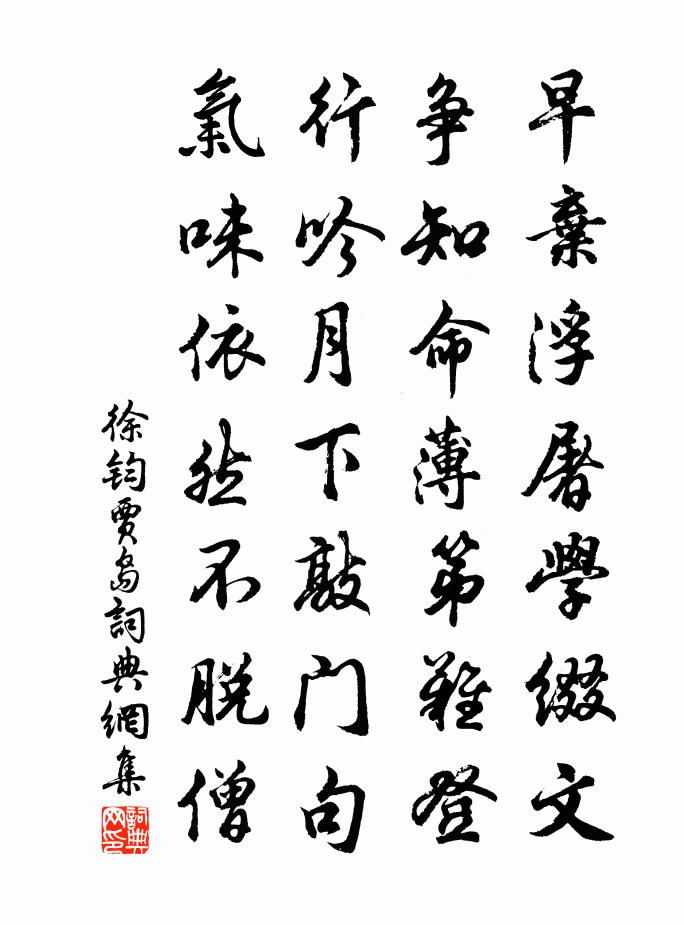 早棄浮屠學綴文
爭知命薄第難登
行吟月下敲门句
氣味依然不脱僧
徐钧賈島詞典網集
詞典网印